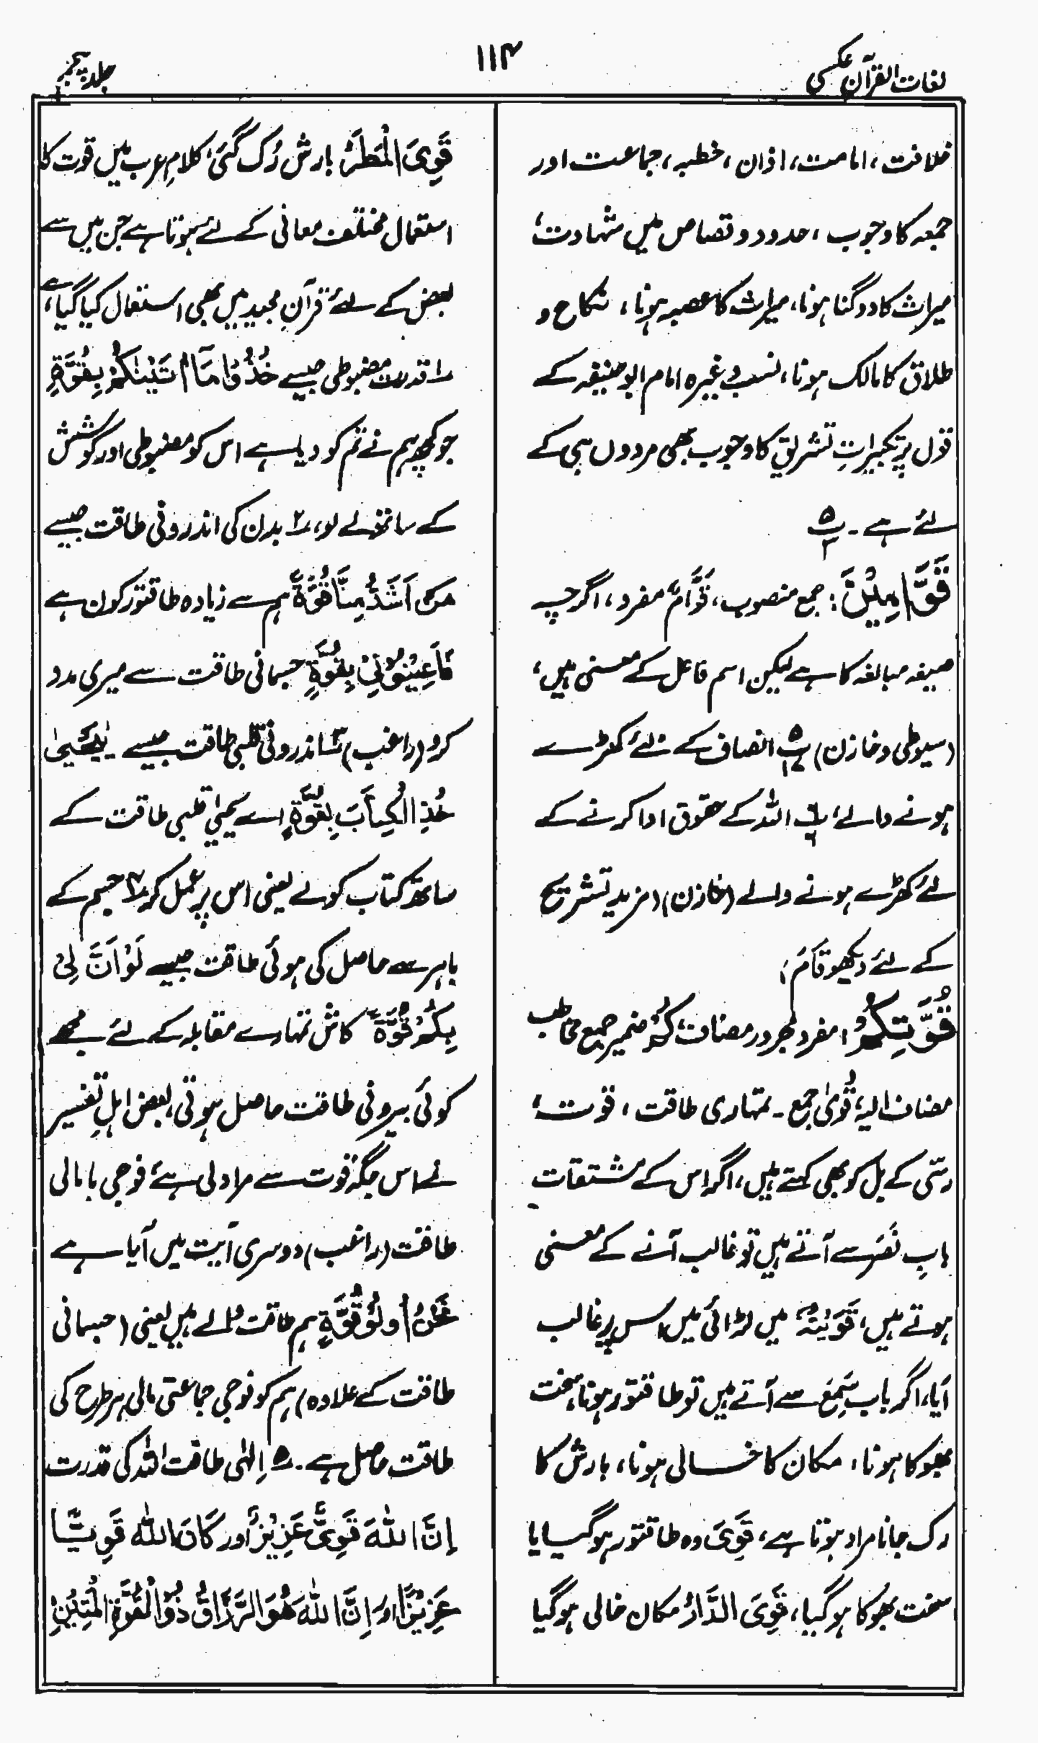 لغات القرآن عکسی
۱۱۴
جلد پنجم
خلافت، امامت، اذان، خطبہ، جماعت اور
جمعہ کا وجوب، حدود و قصاص میں شہادت،
میراث کا دوگنا ہونا، میراث کا عصبہ ہونا، نکاح و
طلاق کا مالک ہونا، نسب وغیرہ امام ابو حنیفہ کے
قول پر تکبیراتِ تشریق کا وجوب بھی مردوں ہی کے
لئے ہے۔ پ ۵ ۲
قَوَّامِیْنَ: جمع منصوب، قَوَّامٌ مفرد، اگرچہ
صیغہ مبالغہ کا ہے لیکن اسم فاعل کے معنی ہیں،
(سیوطی و خازن) پ ۵ ۱۷ انصاف کے لئے کھڑے
ہونے والے، پ ۶ اللہ کے حقوق ادا کرنے کے
لئے کھڑے ہونے والے (خازن) (مزید تشریح
کے لئے دیکھو قَامَ)
قُوَّتِکُمْ: مفرد مجرور مضاف، کُمْ ضمیر جمع مخاطب
مضاف الیہ، قُویٰ جمع۔ تمہاری طاقت، قوت،
رسّی کے بل کو بھی کہتے ہیں، اگر اس کے مشتقات
بابِ نَصَرَ سے آتے ہیں تو غالب آنے کے معنی
ہوتے ہیں، قَوَیْتُہٗ میں لڑائی میں اس پر غالب
آیا، اگر باب سَمِعَ سے آتے ہیں تو طاقتور ہونا، سخت
بھوکا ہونا، مکان کا خالی ہونا، بارش کا
رک جانا مراد ہوتا ہے، قَوِیَ وہ طاقتور ہوگیا یا
سخت بھوکا ہوگیا، قَوِیَ الدَّارُ مکان خالی ہوگیا
قَوِیَ الْمَطَرُ بارش رُک گئی، کلامِ عرب میں قوت کا
استعمال مختلف معانی کے لئے ہوتا ہے جن میں سے
بعض کے لئے قرآنِ مجید میں بھی استعمال کیا گیا ہے،
۱ قدرت مضبوطی جیسے خُذُوْا مَآ اٰتَیْنٰکُمْ بِقُوَّۃٍ
جو کچھ ہم نے تم کو دیا ہے اس کو مضبوطی اور کوشش
کے ساتھ لے لو، ۲ بدن کی اندرونی طاقت جیسے
مَنْ اَشَدُّ مِنَّا قُوَّۃً ہم سے زیادہ طاقتور کون ہے
فَاَعِیْنُوْنِیْ بِقُوَّۃٍ جسمانی طاقت سے میری مدد
کرو (راغب) ۳ اندرونی قلبی طاقت جیسے یٰیَحْیٰی
خُذِ الْکِتٰبَ بِقُوَّۃٍ اے یحییٰ قلبی طاقت کے
ساتھ کتاب کو لے یعنی اس پر عمل کر ۴ جسم کے
باہر سے حاصل کی ہوئی طاقت جیسے لَوْ اَنَّ لِیْ
بِکُمْ قُوَّۃً کاش تمہارے مقابلہ کے لئے مجھے
کوئی بیرونی طاقت حاصل ہوتی، بعض اہلِ تفسیر
نے اس جگہ قوت سے مراد لی ہے فوجی یا مالی
طاقت (راغب) دوسری آیت میں آیا ہے
نَحْنُ اُولُوْ قُوَّۃٍ ہم طاقت والے ہیں یعنی (جسمانی
طاقت کے علاوہ) ہم کو فوجی جماعتی مالی ہر طرح کی
طاقت حاصل ہے۔ ۵ اِلٰہی طاقت اللہ کی قدرت
اِنَّ اللّٰہَ قَوِیٌّ عَزِیْزٌ اور کَانَ اللّٰہُ قَوِیًّا
عَزِیْزًا اور اِنَّ اللّٰہَ ھُوَ الرَّزَّاقُ ذُوالْقُوَّۃِ الْمَتِیْنُ